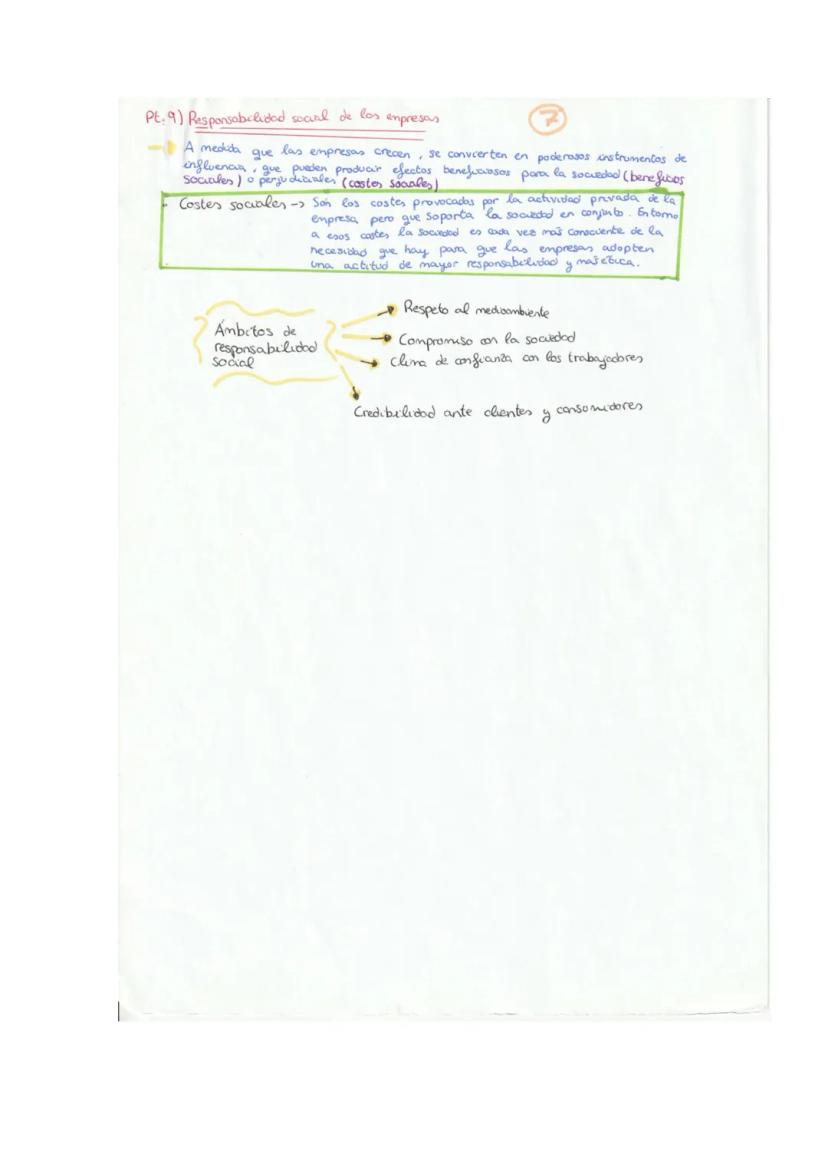 Pt.9) Responsabilidad social de las empresas
7
A medida que las empresas crecen, se convierten en poderosos instrumentos de
influencia, que pueden producir efectos beneficiosos para la sociedad (beneficios
sociales) o perjudiciales (costes sociales)
· Costes sociales -> Son los costes provocados por la actividad privada de la
empresa pero que soporta la sociedad en conjunto. Entorno
a esos costes la sociedad es cada vez más consciente de la
necesidad que hay para que las empresas adopten
una actitud de mayor responsabilidad y más ética.
Ámbitos de
responsabilidad
social
Respeto al medioambiente
Compromiso con la sociedad
Clima de confianza con los trabajadores
Credibilidad ante clientes y consumidores